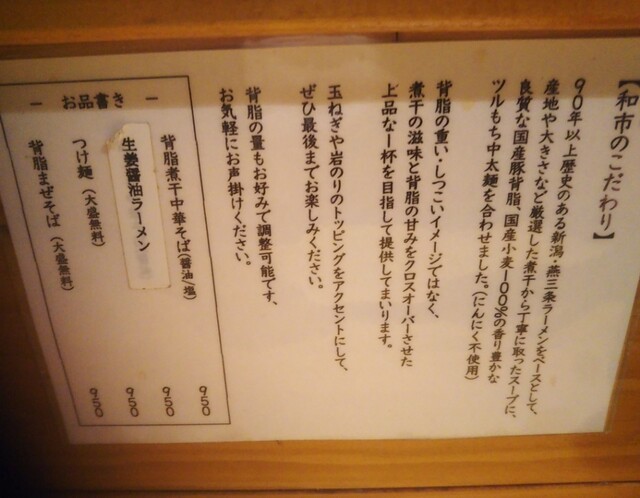 【和市のこだわり】
９０年以上歴史のある新潟・燕三条ラーメンをベースとして、
産地や大きさなど厳選した煮干から丁寧に取ったスープに、
良質な国産豚背脂、国産小麦１００％の香り豊かな
ツルもち中太麺を合わせました。（にんにく不使用）
背脂の重い・しつこいイメージではなく、
煮干の滋味と背脂の甘みをクロスオーバーさせた
上品な一杯を目指して提供してまいります。
玉ねぎや岩のりのトッピングをアクセントにして、
ぜひ最後までお楽しみください。
背脂の量もお好みで調整可能です、
お気軽にお声掛けください。
ー お品書き ー
背脂煮干中華そば（醤油/塩） ９５０
生姜醤油ラーメン ９５０
つけ麺（大盛無料） ９５０
背脂まぜそば（大盛無料） ９５０